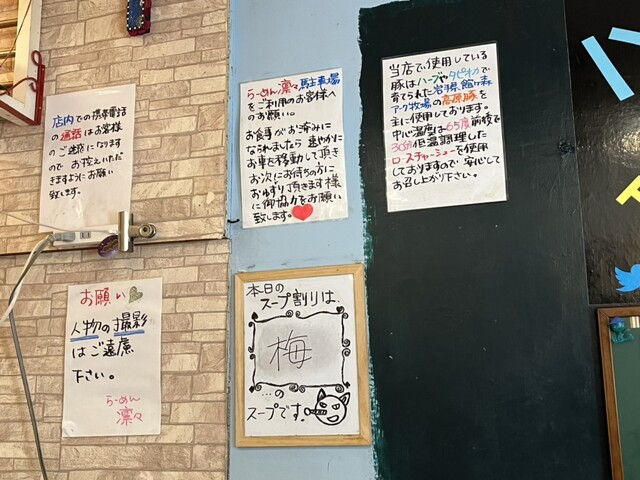 店内での携帯電話
の通話はお客様
のご迷惑になります
ので お控えいただ
きますようにお願い
致します。
らーめん凛々駐車場
をご利用のお客様へ
のお願い。
お食事がお済みに
なられましたら 速やかに
お車を移動して頂き
お次にお待ちの方に
おゆずり頂きます様
に御協力をお願い
致します。
当店で使用している
豚はハーブやタピオカで
育てられた岩手県館ヶ森
アーク牧場の高原豚を
主に使用しております。
中心温度は65度前後で
30分低温調理した
ローストチャーシューを使用
しておりますので 安心して
お召し上がり下さい。
お願い
人物の撮影
はご遠慮
下さい。
らーめん
凛々
本日の
スープ割りは、
梅
…の
スープです。